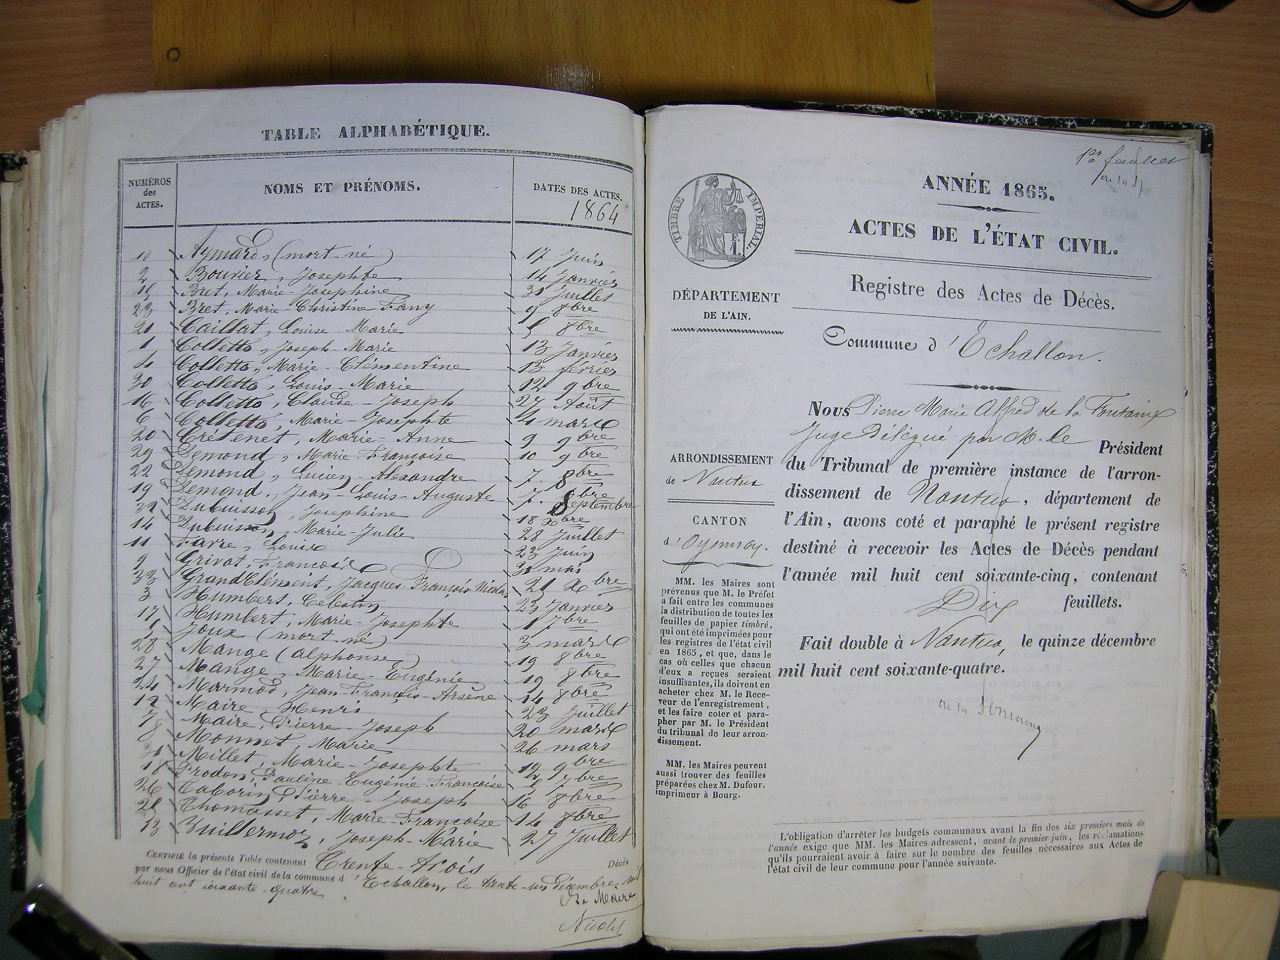 TABLE ALPHABÉTIQUE.
NUMÉROS des ACTES. NOMS ET PRÉNOMS. DATES DES ACTES.
1864
Aymard (mort-né) 17 Juin
2 Bouvier, Josephte 14 Janvier
Bret, Marie Josephine 31 Juillet
23 Bret, Marie-Christine Fany 9 8bre
21 Caillat, Louise Marie 5 8bre
1 Colletta, Joseph Marie 13 Janvier
4 Colletta, Marie-Clémentine 13 février
30 Colletta, Louis-Marie 12 9bre
16 Colletta, Claude-Joseph 27 Août
6 Colletta, Marie-Josephte 4 mars
20 Crétenet, Marie-Anne 9 9bre
29 Demond, Marie Françoise 10 9bre
22 Demond, Lucien-Alexandre 7 8bre
19 Demond, Jean-Louis-Auguste 7 8bre
Dubuisson, Josephine Septembre
14 Dubuisson, Marie-Julie 18 xbre
11 Favre, Louise 28 Juillet
9 Grivat, François 23 Juin
33 GrandClément, Jacques François Nicolas 31 mai
3 Humbert, Celestin 21 xbre
17 Humbert, Marie-Josephte 23 Janvier
5 Joux (mort-né) 1 7bre
28 Mange (alphonse 3 mars
27 Mange, Marie-Eugénie 19 8bre
24 Marmod, Jean François-Arsène 19 8bre
12 Maire, Henri 14 8bre
7 Maire, Pierre-Joseph 23 Juillet
8 Monnet, Marie 20 mars
31 Millet, Marie-Josephte 26 mars
18 Prodon, Pauline-Eugénie-Françoise 19 9bre
26 Taborin, Pierre-Joseph 7bre
25 Thomasset, Marie-Françoise 16 8bre
13 Vuillermoz, Joseph-Marie 14 8bre
27 Juillet
CERTIFIÉ la présente Table contenant Trente-trois Décès
par nous Officier de l'état civil de la commune d'Echallon, le trente-un Décembre mil
huit cent soixante-quatre.
Le Maire
Nicolet
1er feuillet
ANNÉE 1865.
ACTES DE L'ÉTAT CIVIL.
TIMBRE IMPÉRIAL
Registre des Actes de Décès.
DÉPARTEMENT
DE L'AIN.
Commune d'Echallon.
ARRONDISSEMENT
de Nantua
CANTON
d'Oyonnax.
MM. les Maires sont
prévenus que M. le Préfet
a fait entre les communes
la distribution de toutes les
feuilles de papier timbré,
qui ont été imprimées pour
les registres de l'état civil
en 1865, et que, dans le
cas où celles que chacun
d'eux a reçues seraient
insuffisantes, ils doivent en
acheter chez M. le Rece-
veur de l'enregistrement,
et les faire coter et para-
pher par M. le Président
du tribunal de leur arron-
dissement.
MM. les Maires peuvent
aussi trouver des feuilles
préparées chez M. Dufour,
imprimeur à Bourg.
Nous Pierre Marie Alfred de la Fontaine
Juge Délégué par M. le Président
du Tribunal de première instance de l'arron-
dissement de Nantua, département de
l'Ain, avons coté et paraphé le présent registre
destiné à recevoir les Actes de Décès pendant
l'année mil huit cent soixante-cinq, contenant
Dix feuillets.
Fait double à Nantua, le quinze décembre
mil huit cent soixante-quatre.
L'obligation d'arrêter les budgets communaux avant la fin des six premiers mois de
l'année exige que MM. les Maires adressent, avant le premier juin, les réclamations
qu'ils pourraient avoir à faire sur le nombre des feuilles nécessaires aux Actes de
l'état civil de leur commune pour l'année suivante.